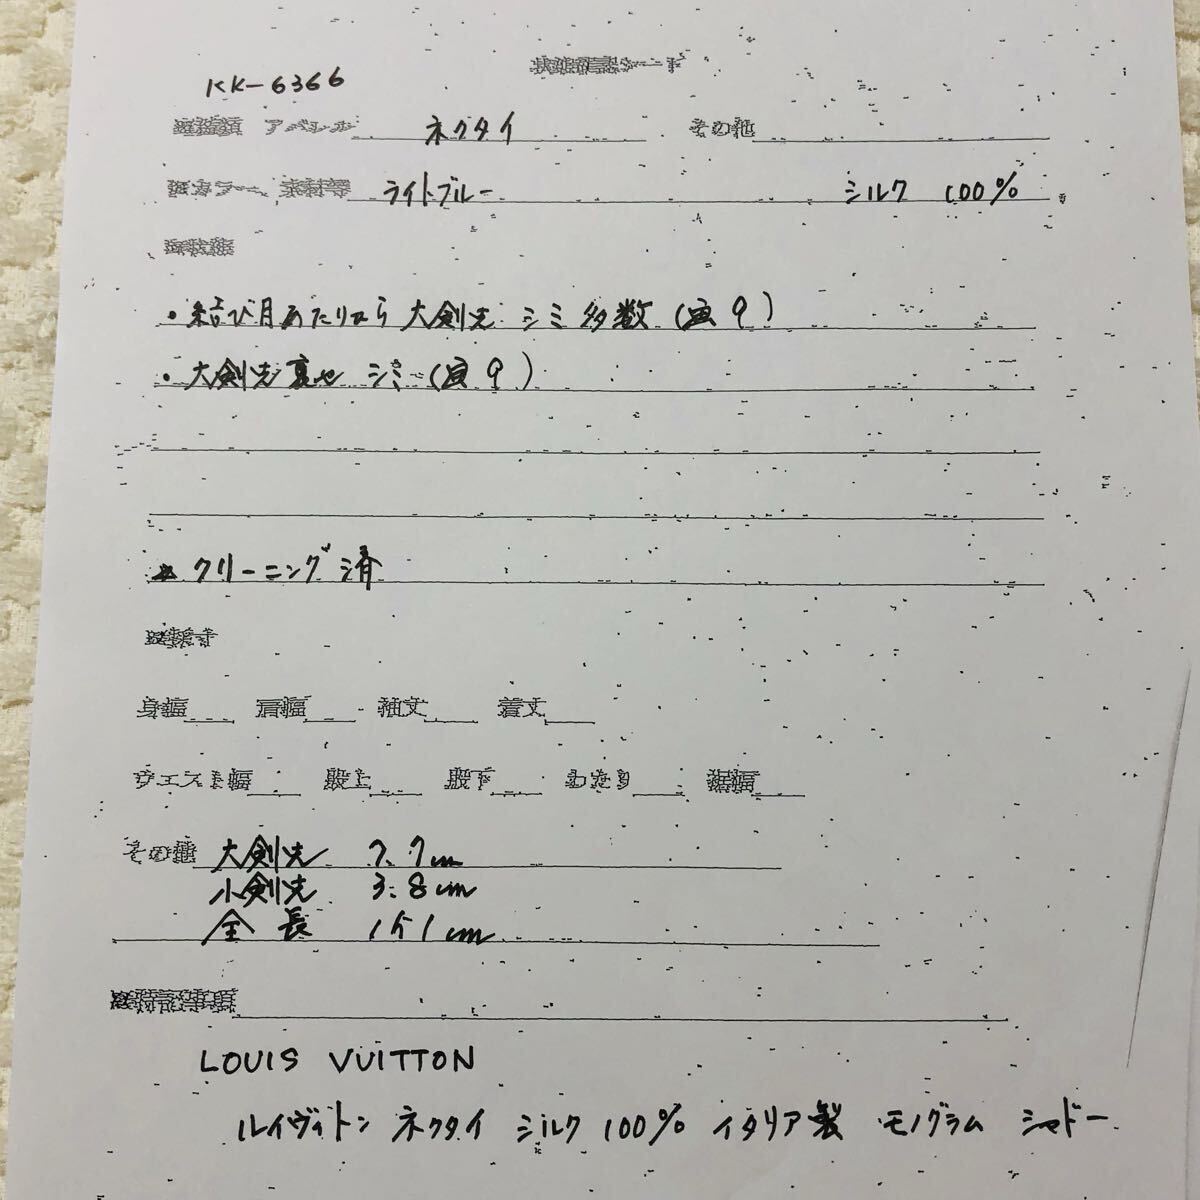 KK-6366
状態確認シート
アパレル ネクタイ その他
カラー、素材等 ライトブルー シルク 100%
状態
・結び目あたりから 大剣先 シミ 多数 (画9)
・大剣先裏地 シミ (画9)
クリーニング済
身幅 肩幅 袖丈 着丈
ウエスト幅 股上 股下 わたり 裾幅
その他 大剣先 7.7cm
小剣先 3.8cm
全長 151cm
特記事項
LOUIS VUITTON
ルイヴィトン ネクタイ シルク 100% イタリア製 モノグラム シャドー